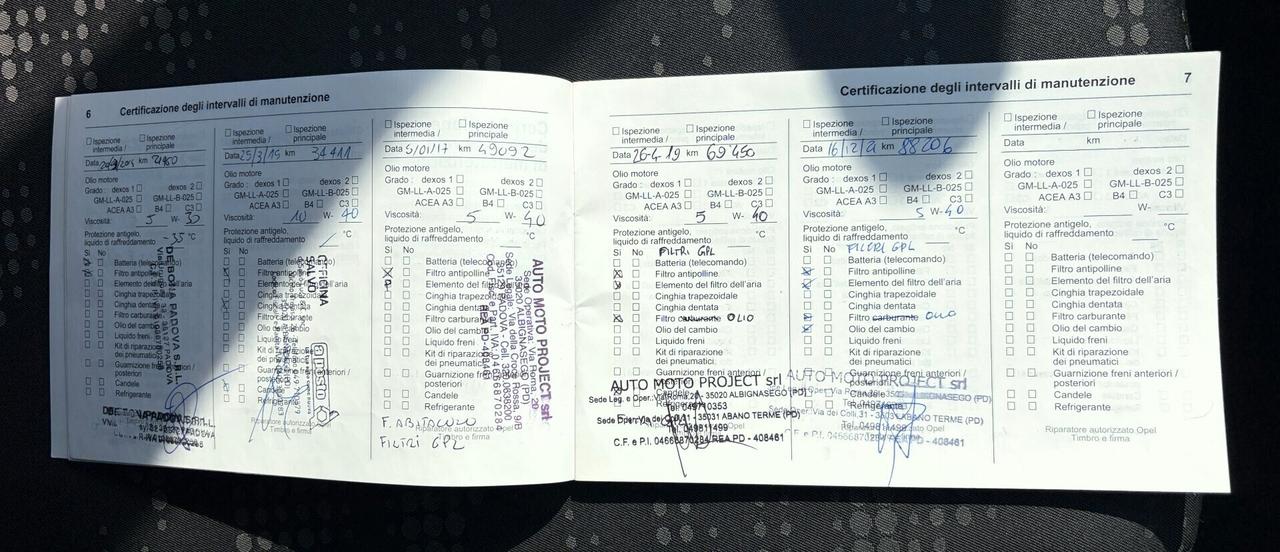 6 Certificazione degli intervalli di manutenzione
Ispezione intermedia / Ispezione principale
Data km
Olio motore
Grado : dexos 1 dexos 2
GM-LL-A-025 GM-LL-B-025
ACEA A3 B4 C3
Viscosità: 5 W- 30
Protezione antigelo, liquido di raffreddamento -35 °C
Si No
Batteria (telecomando)
Filtro antipolline
Elemento del filtro dell'aria
Cinghia trapezoidale
Cinghia dentata
Filtro carburante
Olio del cambio
Liquido freni
Kit di riparazione dei pneumatici
Guarnizione freni anteriori / posteriori
Candele
Refrigerante
Ispezione intermedia / Ispezione principale
Data 25/3/15 km 34411
Olio motore
Grado : dexos 1 dexos 2
GM-LL-A-025 GM-LL-B-025
ACEA A3 B4 C3
Viscosità: 10 W- 40
Protezione antigelo, liquido di raffreddamento °C
Si No
Batteria (telecomando)
Filtro antipolline
Elemento del filtro dell'aria
Cinghia trapezoidale
Cinghia dentata
Filtro carburante
Olio del cambio
Liquido freni
Kit di riparazione dei pneumatici
Guarnizione freni anteriori / posteriori
Candele
Refrigerante
Riparatore autorizzato Opel
Timbro e firma
Ispezione intermedia / Ispezione principale
Data 5/01/17 km 49092
Olio motore
Grado : dexos 1 dexos 2
GM-LL-A-025 GM-LL-B-025
ACEA A3 B4 C3
Viscosità: 5 W- 40
Protezione antigelo, liquido di raffreddamento °C
Si No
Batteria (telecomando)
Filtro antipolline
Elemento del filtro dell'aria
Cinghia trapezoidale
Cinghia dentata
Filtro carburante
Olio del cambio
Liquido freni
Kit di riparazione dei pneumatici
Guarnizione freni anteriori / posteriori
Candele
Refrigerante
AUTO MOTO PROJECT srl
FILTRI GPL
Riparatore autorizzato Opel
Timbro e firma
Certificazione degli intervalli di manutenzione 7
Ispezione intermedia / Ispezione principale
Data 26-4-19 km 69450
Olio motore
Grado : dexos 1 dexos 2
GM-LL-A-025 GM-LL-B-025
ACEA A3 B4 C3
Viscosità: 5 W- 40
Protezione antigelo, liquido di raffreddamento °C
Si No FILTRI GPL
Batteria (telecomando)
Filtro antipolline
Elemento del filtro dell'aria
Cinghia trapezoidale
Cinghia dentata
Filtro carburante OLIO
Olio del cambio
Liquido freni
Kit di riparazione dei pneumatici
Guarnizione freni anteriori /
AUTO MOTO PROJECT srl
Sede Leg. e Oper. Via Roma - 35020 ALBIGNASEGO (PD)
- 35031 ABANO TERME (PD)
Tel. 049811499
C.F. e P.I. 04666870284 REA PD - 408461
Ispezione intermedia / Ispezione principale
Data km 88206
Olio motore
Grado : dexos 1 dexos 2
GM-LL-A-025 GM-LL-B-025
ACEA A3 B4 C3
Viscosità: 5 W- 40
Protezione antigelo, liquido di raffreddamento °C
Si No FILTRI GPL
Batteria (telecomando)
Filtro antipolline
Elemento del filtro dell'aria
Cinghia trapezoidale
Cinghia dentata
Filtro carburante OLIO
Olio del cambio
Liquido freni
Kit di riparazione dei pneumatici
Guarnizione freni anteriori / posteriori
Candele
Refrigerante
AUTO MOTO PROJECT srl
Ispezione intermedia / Ispezione principale
Data km
Olio motore
Grado : dexos 1 dexos 2
GM-LL-A-025 GM-LL-B-025
ACEA A3 B4 C3
Viscosità: W-
Protezione antigelo, liquido di raffreddamento °C
Si No
Batteria (telecomando)
Filtro antipolline
Elemento del filtro dell'aria
Cinghia trapezoidale
Cinghia dentata
Filtro carburante
Olio del cambio
Liquido freni
Kit di riparazione dei pneumatici
Guarnizione freni anteriori / posteriori
Candele
Refrigerante
Riparatore autorizzato Opel
Timbro e firma